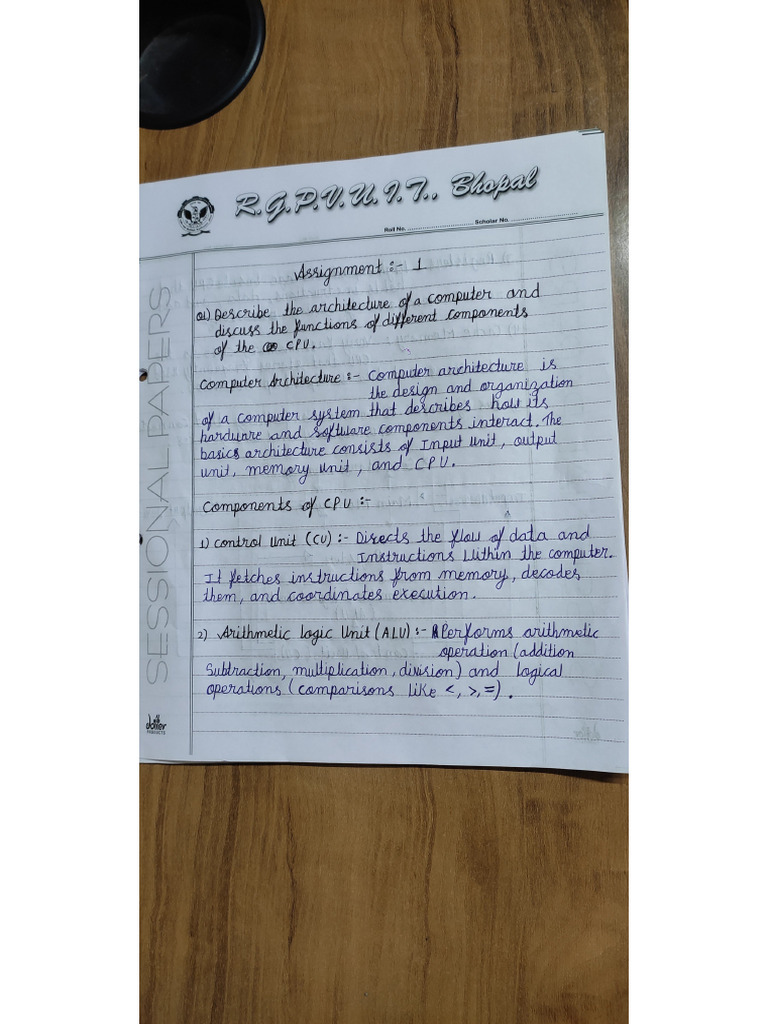 R.G.P.V.U.I.T., Bhopal
Roll No. ........................ Scholar No. ........................
SESSIONAL PAPERS
Assignment :- 1
Q1) Describe the architecture of a computer and
discuss the functions of different components
of the CPU.
Computer Architecture :- Computer architecture is
the design and organization
of a computer system that describes how its
hardware and software components interact. The
basics architecture consists of Input Unit, output
unit, memory unit, and CPU.
Components of CPU :-
1) Control Unit (CU) :- Directs the flow of data and
Instructions Within the computer.
It fetches instructions from memory, decodes
them, and coordinates execution.
2) Arithmetic Logic Unit (ALU) :- Performs arithmetic
operation (addition
Subtraction, multiplication, division) and logical
operations (comparisons like <, >, =).
PRODUCTS